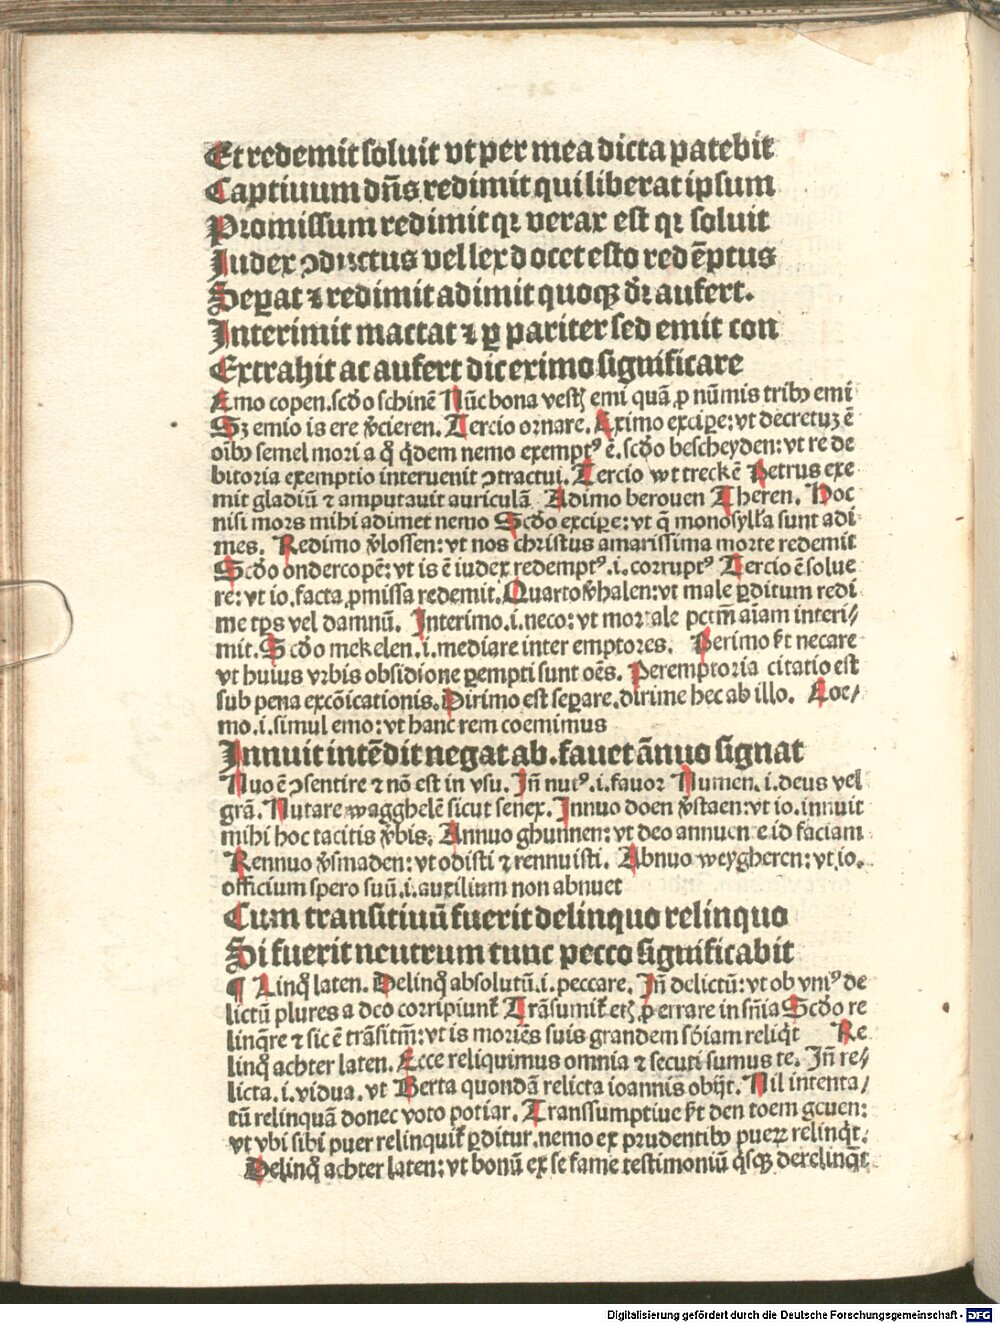 Et redemit soluit vt per mea dicta patebit
Captiuum dn̄s redimit qui liberat ipsum
Promissum redimit qꝛ verax est qꝛ soluit
Iudex ꝯductus vel lex docet esto redēptus
Sepat ⁊ redimit adimit quoqꝫ dr̄ aufert.
Interimit mactat ⁊ ꝑ pariter sed emit con
Extrahit ac aufert dic eximo significare
Emo copen. scd̓o schinē Nūc bona vestꝫ emi quā ꝓ nūmis tribꝰ emi
Sꝫ emio is ere v̓cieren. Tercio ornare. Eximo excipe: vt decretuꝫ ē
oībꝰ semel mori a q̊ q̇dem nemo exemptꝰ ē. scd̓o bescheyden: vt re de
bitoria exemptio interuenit ꝯtractui. Tercio wt treckē Petrus exe
mit gladiū ⁊ amputauit auriculā Adimo berouen Theren. Hoc
nisi mors mihi adimet nemo Scd̓o excipe: vt q̄ monosylła sunt adi
mes. Redimo v̓lossen: vt nos christus amarissima morte redemit
Scd̓o ondercopē: vt is ē iudex redemptꝰ .i. corruptꝰ Tercio ē solue
re: vt io. facta ꝓmissa redemit. Quarto v̓halen: vt male ꝑditum redi
me tp̄s vel damnū. Interimo .i. neco: vt mortale pctm̄ aīam interi/
mit. Scd̓o mekelen .i. mediare inter emptores. Perimo fit necare
vt huius vrbis obsidione ꝑempti sunt oēs. Peremptoria citatio est
sub pena excōicationis. Dirimo est separe. dirime hec ab illo. Coe/
mo .i. simul emo: vt hanc rem coemimus
Innuit intēdit negat ab. fauet ānuo signat
Nuo ē ꝯsentire ⁊ nō est in vsu. In̄ nutꝰ .i. fauor Numen .i. deus vel
grā. Nutare wagghelē sicut senex. Innuo doen v̓staen: vt io. innuit
mihi hoc tacitis v̓bis. Annuo ghunnen: vt deo annuente id faciam
Rennuo v̓smaden: vt odisti ⁊ rennuisti. Abnuo weygheren: vt io.
officium spero suū .i. auxilium non abnuet
Cum transitiuū fuerit delinquo relinquo
Si fuerit neutrum tunc pecco significabit
¶ Linq̊ laten. Delinq̊ absolutū .i. peccare. In̄ delictū: vt ob vniꝰ de
lictū plures a deo corripiunt̄ Trāsumit̄ etꝫ ꝓ errare in sn̄ia Scd̓o re
linq̄re ⁊ sic ē trāsitm̄: vt is moriēs suis grandem sb̄iam reliq̇t Re
linq̊ achter laten. Ecce reliquimus omnia ⁊ secuti sumus te. In̄ re/
licta .i. vidua. vt Berta quondā relicta ioannis obijt. Nil intenta/
tū relinquā donec voto potiar. Transsumptiue fit den toem geuen:
vt vbi sibi puer relinquit̄ ꝑditur. nemo ex prudentibꝰ pueꝝ relinq̇t.
Delinq̊ achter laten: vt bonū ex se fame testimoniū q̇sqꝫ derelinq̇t
Digitalisierung gefördert durch die Deutsche Forschungsgemeinschaft - DFG